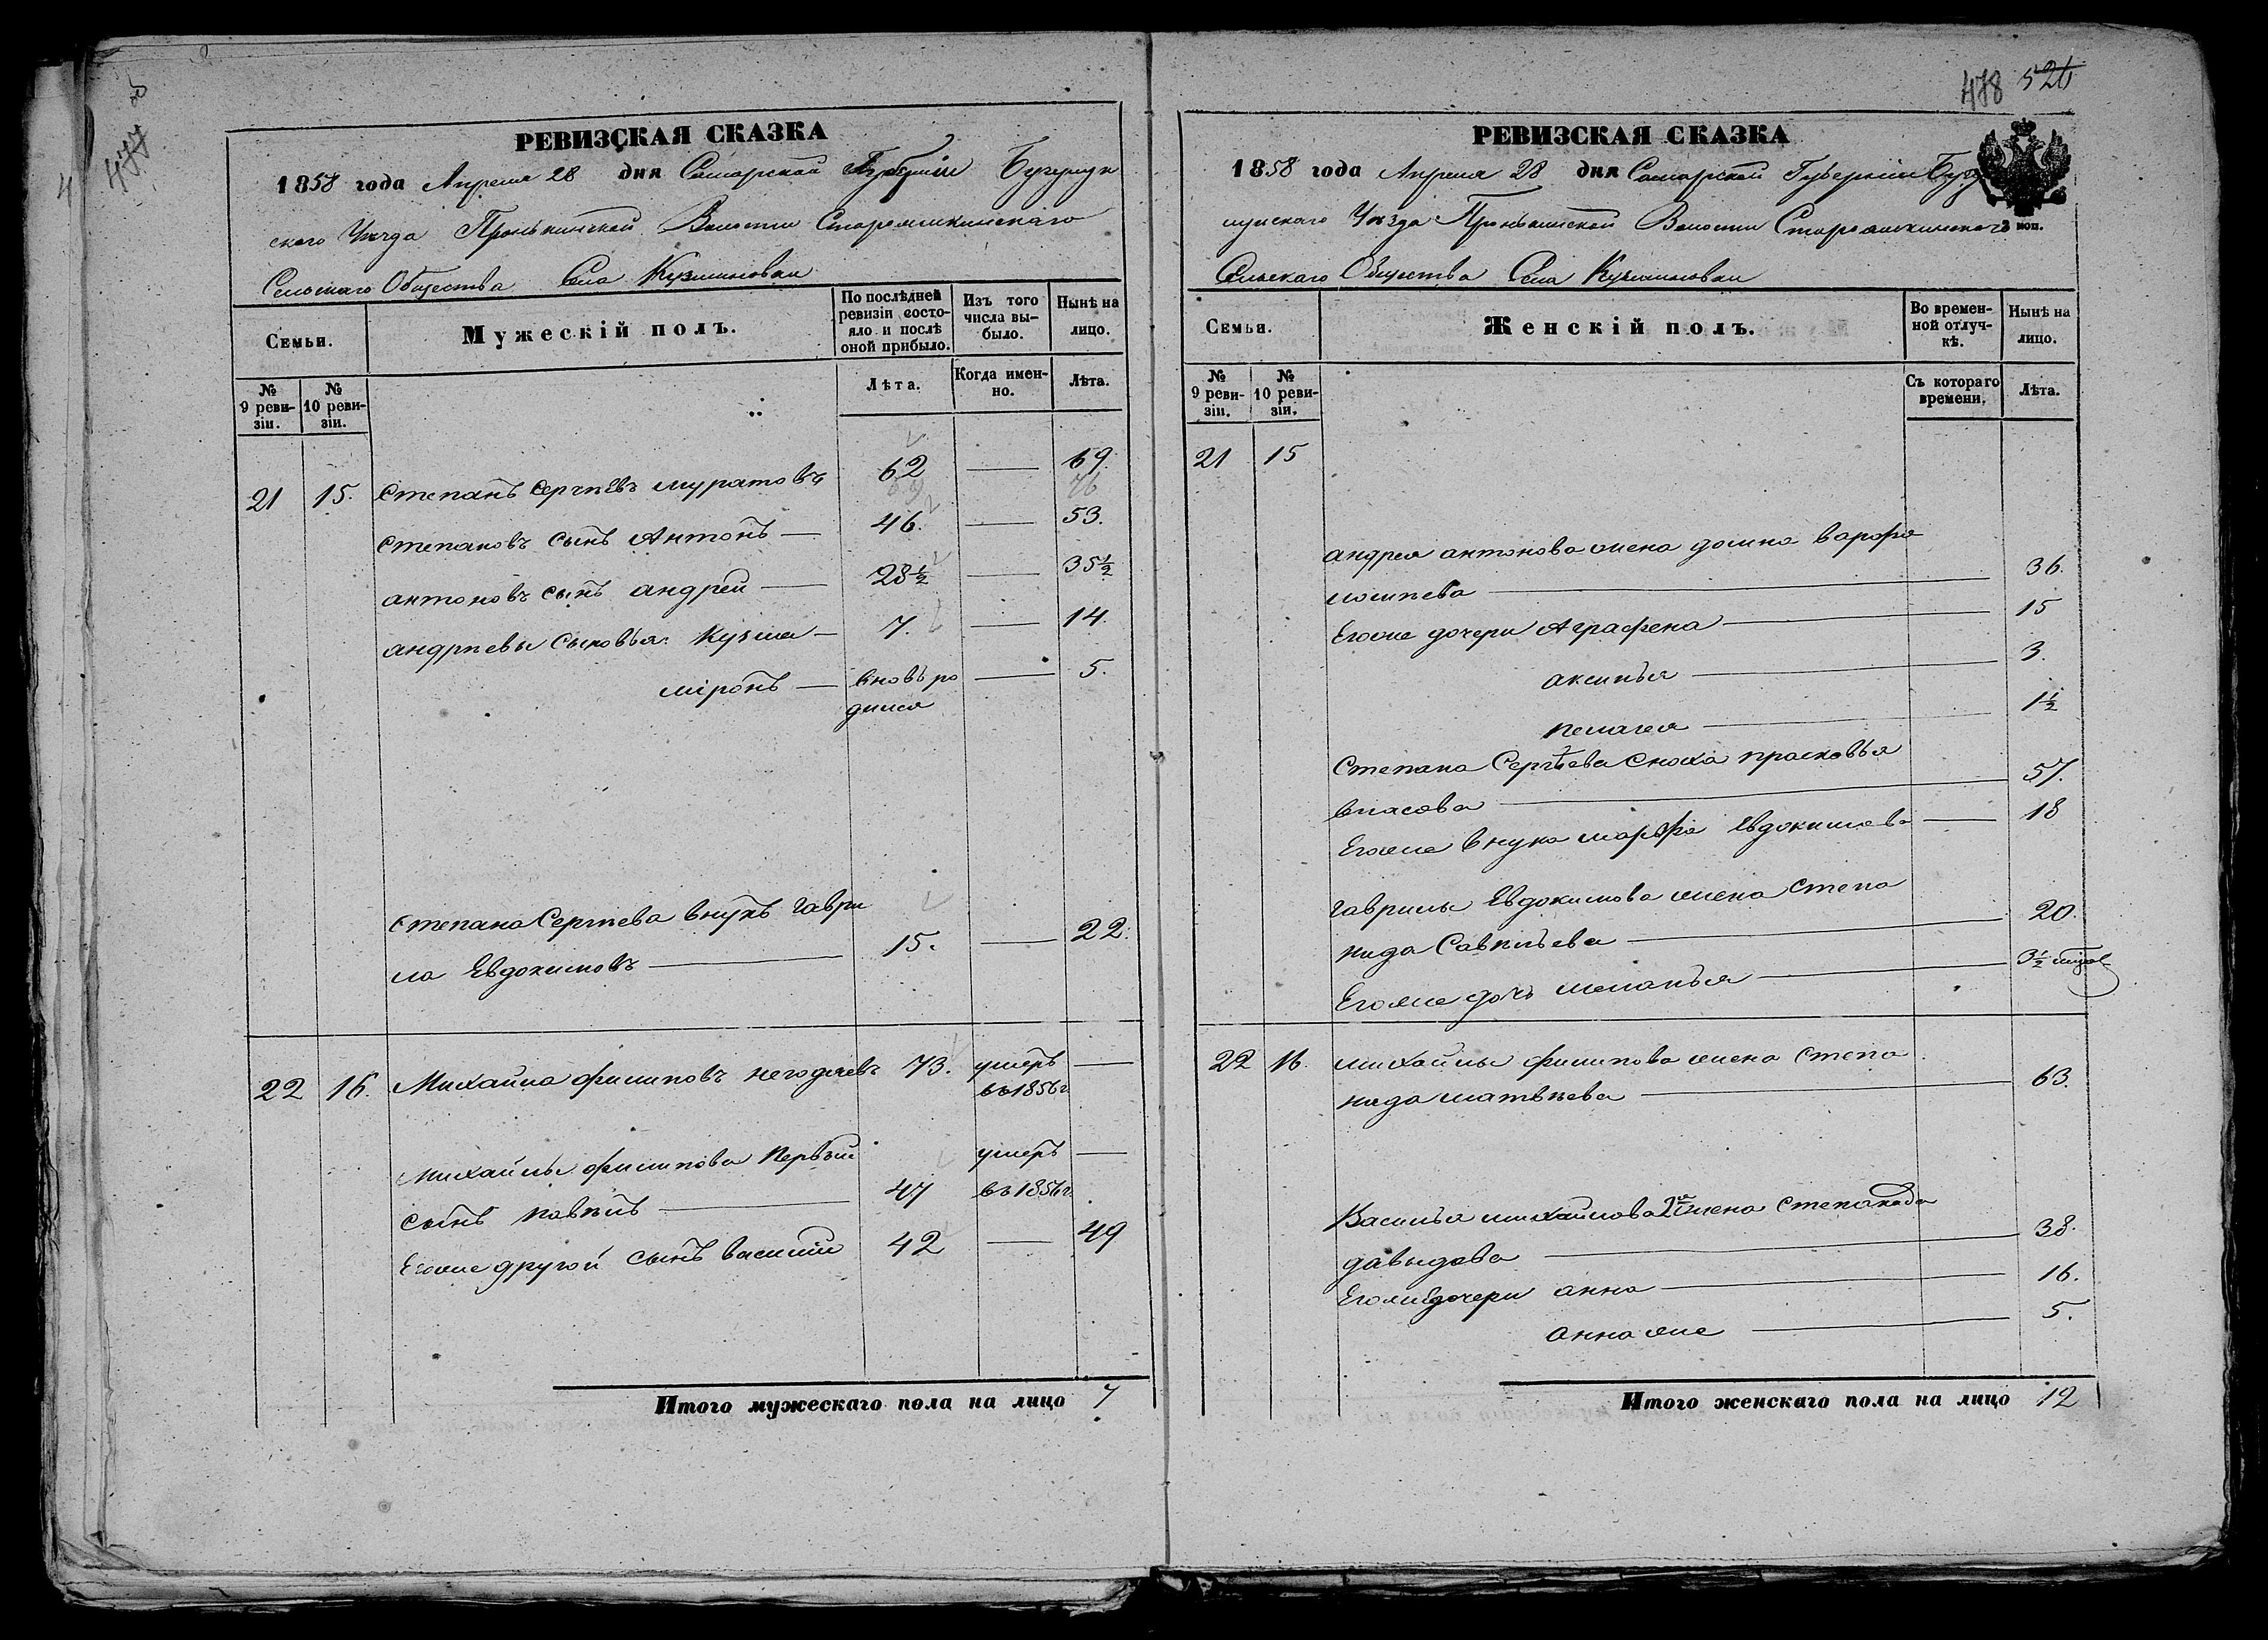 477
РЕВИЗСКАЯ СКАЗКА
1858 года Апреля 28 дня Самарской Губерніи Бугурусл
скаго Уѣзда Пронькинской Волости
Сельскаго Общества Села Кузминовки
Семьи.
Мужескій полъ.
По послѣдней ревизіи состояло и послѣ оной прибыло.
Изъ того числа выбыло.
Нынѣ на лицо.
№ 9 ревизіи.
№ 10 ревизіи.
Лѣта.
Когда именно.
Лѣта.
21 15. Степанъ Сергѣевъ Муратовъ 62 — 69.
Степановъ сынъ Антонъ — 46. — 53.
Антоновъ сынъ Андрей — 28½ — 35½
Андрѣевы сыновья: Кузма — 7. — 14.
Міронъ — вновь ро — 5.
дился
Степана Сергѣева внукъ Гаври
ла Евдокимовъ — 15. — 22.
22 16. Михайла Филиповъ Негодяевъ 73. умеръ —
въ 1856 г
Михайлы Филипова первый умеръ —
сынъ Павѣлъ — 47 въ 1856 г.
Егоже другой сынъ Василий 42 — 49
Итого мужескаго пола на лицо 7
478 526
РЕВИЗСКАЯ СКАЗКА
1858 года Апреля 28 дня Самарской Губерніи Бугу
Уѣзда Пронькинской Волости
Сельскаго Общества Села Кузминовки
коп.
Семьи.
Женскій полъ.
Во временной отлучкѣ.
Нынѣ на лицо.
№ 9 ревизіи.
№ 10 ревизіи.
Съ котораго времени.
Лѣта.
21 15
Андрея Антонова жена Домна Варфо
ломѣева — 36.
Егоже дочери Аграфена — 15
Аксинья — 3.
Пелагея — 1½
Степана Сергѣева сноха Прасковья
Власова — 57.
Егоже внука Марфа Евдокимова — 18
Гаврилы Евдокимова жена Степа
нида Савѣльева — 20.
Егоже дочь Меланья — 3½
22 16. Михайлы Филипова жена Степа
нида Матвѣева — 63.
Василья Михайлова 2я жена Степанида
Давыдова — 38.
Егоже дочери Анна — 16.
Анна же — 5.
Итого женскаго пола на лицо 12